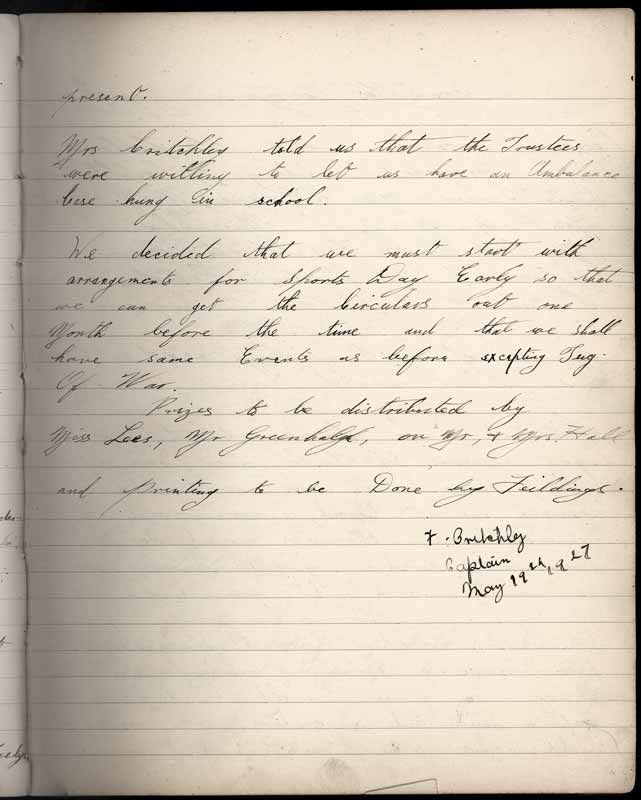 present.
Mrs Critchley told us that the Trustees
were willing to let us have an Ambulance
Case hung in school.
We decided that we must start with
arrangements for Sports Day Early so that
we can get the Circulars out one
Month before the time and that we shall
have same Events as before excepting Tug-
Of-War.
Prizes to be distributed by
Miss Lees, Mr Greenhalgh, or Mr, & Mrs, Hall
and printing to be Done by Feildings.
F. Critchley
Captain
May 19th, 1927